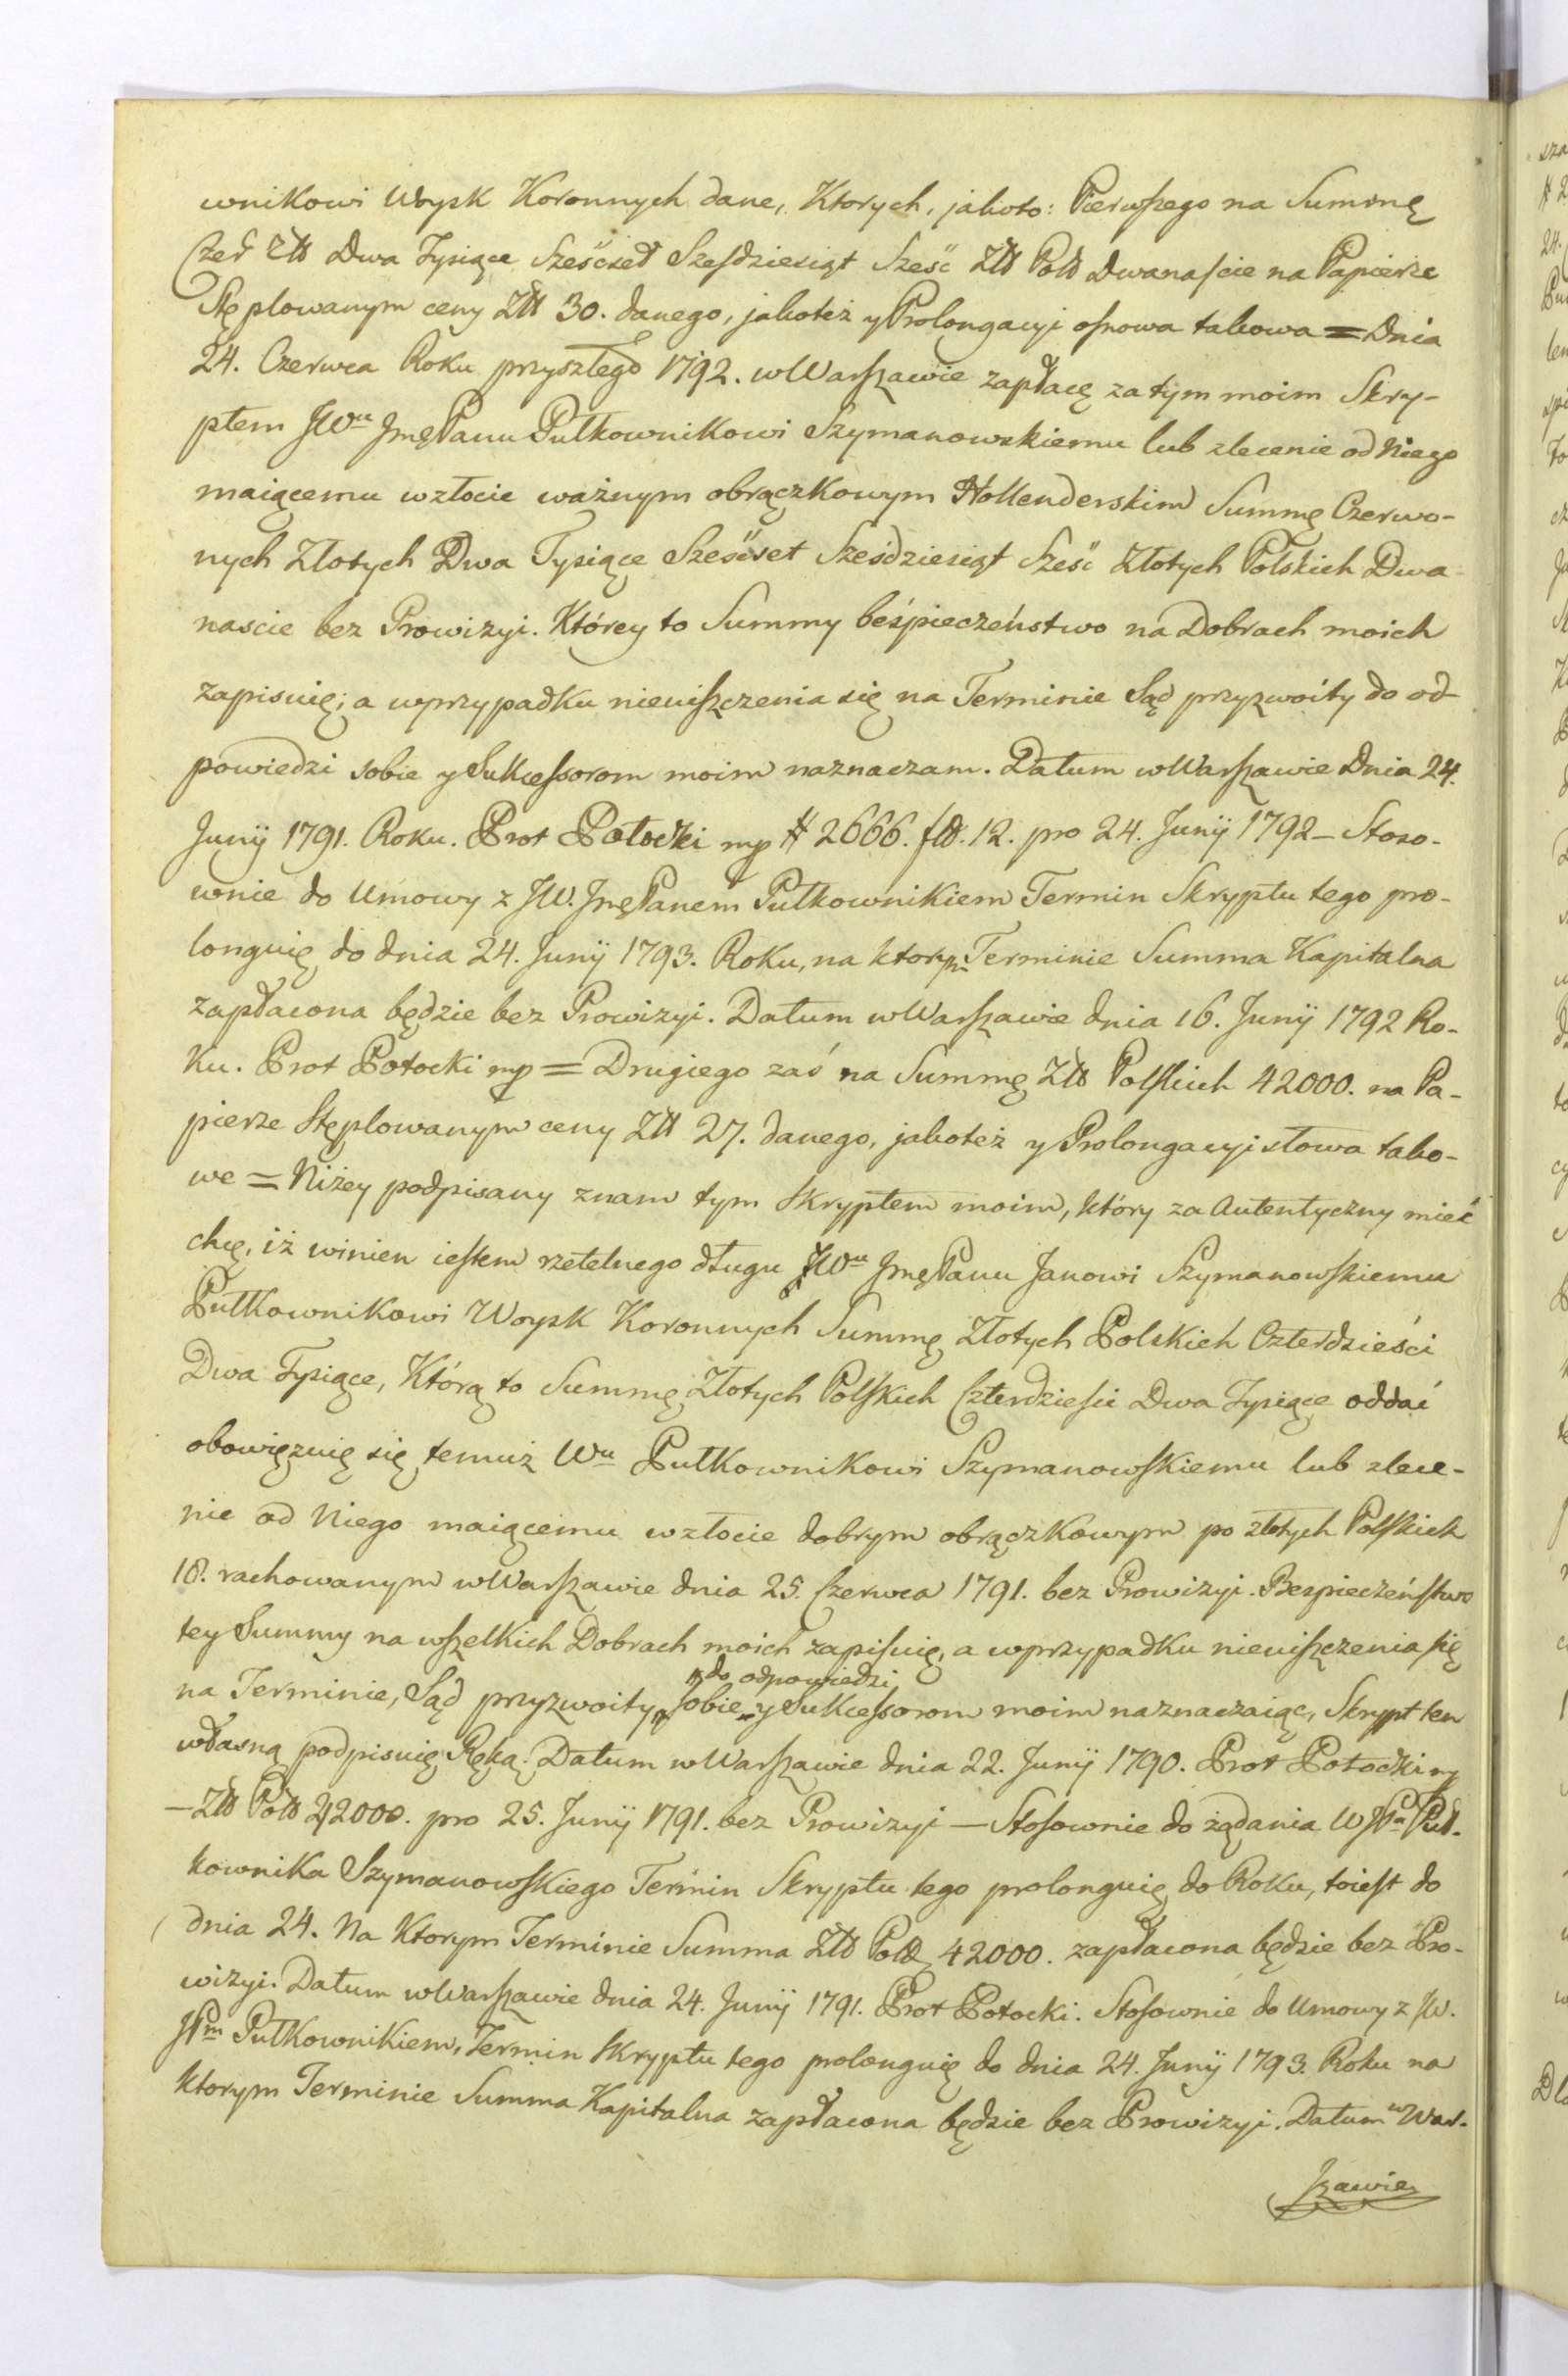 wnikowi Woysk Koronnych dane, Ktorych, jakoto: Pierwszego na Summę
Czer Złł Dwa Tysiące Sześćset Szesdziesiąt Sześć Złł Poll Dwanaście na Papierze
Stęplowanym ceny Złł 30. danego, jakoteż y Prolongacyi osnowa takowa = Dnia
24. Czerwca Roku przyszłego 1792. w Warszawie zapłacę za tym moim Skry-
ptem JWu Jmę Panu Pułkownikowi Szymanowskiemu lub zlecenie od Niego
maiącemu w złocie ważnym obrączkowym Hollenderskim Summę Czerwo-
nych Złotych Dwa Tysiące Sześćset Sześdziesiąt Sześć Złotych Polskich Dwa-
nascie bez Prowizyi. Którey to Summy beśpieczeństwo na Dobrach moich
zapisuię; a w przypadku nieuiszczenia się na Terminie Sąd przyzwoity do od-
powiedzi sobie y Sukcessorom moim naznaczam. Datum w Warszawie Dnia 24.
Junÿ 1791. Roku. Prot Potocki mp # 2666. fll. 12. pro 24. Junÿ 1792 – Stoso-
wnie do Umowy z JW. Jmę Panem Pułkownikiem Termin Skryptu tego pro-
longuię do dnia 24. Junÿ 1793. Roku, na ktorym Terminie Summa Kapitalna
zapłacona będzie bez Prowizyi. Datum w Warszawie dnia 16. Junÿ 1792 Ro-
ku. Prot Potocki mp = Drugiego zaś na Summę Złł Polskich 42000. na Pa-
pierze Stęplowanym ceny Złł 27. danego, jakoteż y Prolongacyi słowa tako-
we = Niżey podpisany znam tym Skryptem moim, który za Autentyczny mieć
chcę, iż winien iestem rzetelnego długu JWu Jmę Panu Janowi Szymanowskiemu
Pułkownikowi Woysk Koronnych Summę Złotych Polskich Czterdzieści
Dwa Tysiące, Którą to Summę Złotych Polskich Czterdzieści Dwa Tysiące oddać
obowięzuię się temuż Wu Pułkownikowi Szymanowskiemu lub zlece-
nie od Niego maiącemu w złocie dobrym obrączkowym po złotych Polskich
18. rachowanym w Warszawie dnia 25. Czerwca 1791. bez Prowizyi. Bezpieczeństwo
tey Summy na wszelkich Dobrach moich zapisuię, a w przypadku nieuiszczenia się
do odpowiedzi
na Terminie, Sąd przyzwoity sobie y Sukcessorom moim naznaczaiąc, Skrypt ten
własną podpisuię Ręką. Datum w Warszawie dnia 22. Junÿ 1790. Prot Potocki mp
– Złł Poll 42000. pro 25. Junÿ 1791. bez Prowizyi – Stosownie do żądania W JPa Puł-
kownika Szymanowskiego Termin Skryptu tego prolonguię do Roku, toiest do
dnia 24. Na Ktorym Terminie Summa Złł Poll 42000. zapłacona będzie bez Pro-
wizyi. Datum w Warszawie dnia 24. Junÿ 1791. Prot Potocki. Stosownie do Umowy z JW.
JPm Pułkownikiem, Termin Skryptu tego prolonguię do dnia 24. Junÿ 1793. Roku na
ktorym Terminie Summa Kapitalna zapłacona będzie bez Prowizyi. Datum w War-
szawie